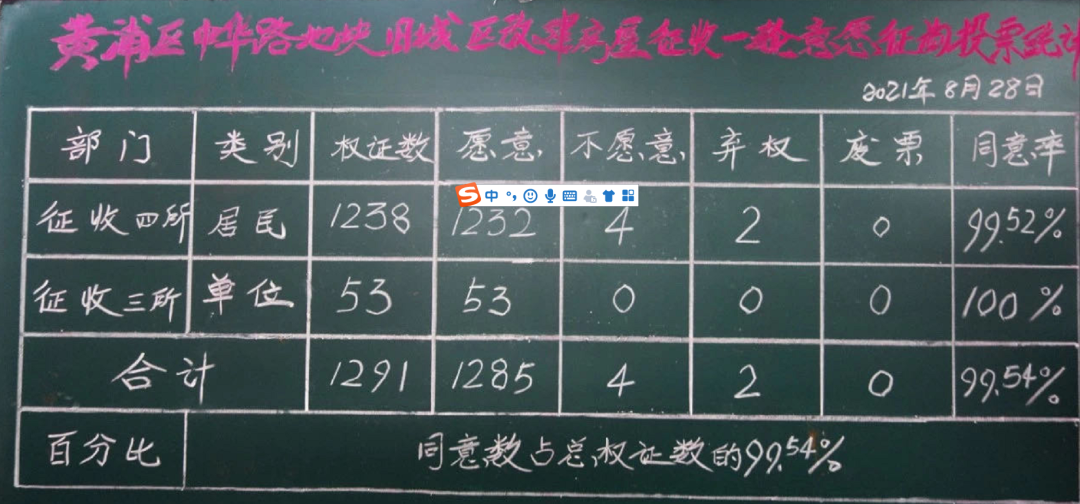 黄浦区中华路地块旧城区改建房屋征收一轮意愿征询投票统计
2021年8月28日
部门 类别 权证数 愿意 不愿意 弃权 废票 同意率
中
征收四所 居民 1238 1232 4 2 0 99.52%
征收三所 单位 53 53 0 0 0 100%
合计 1291 1285 4 2 0 99.54%
百分比 同意数占总权证数的99.54%